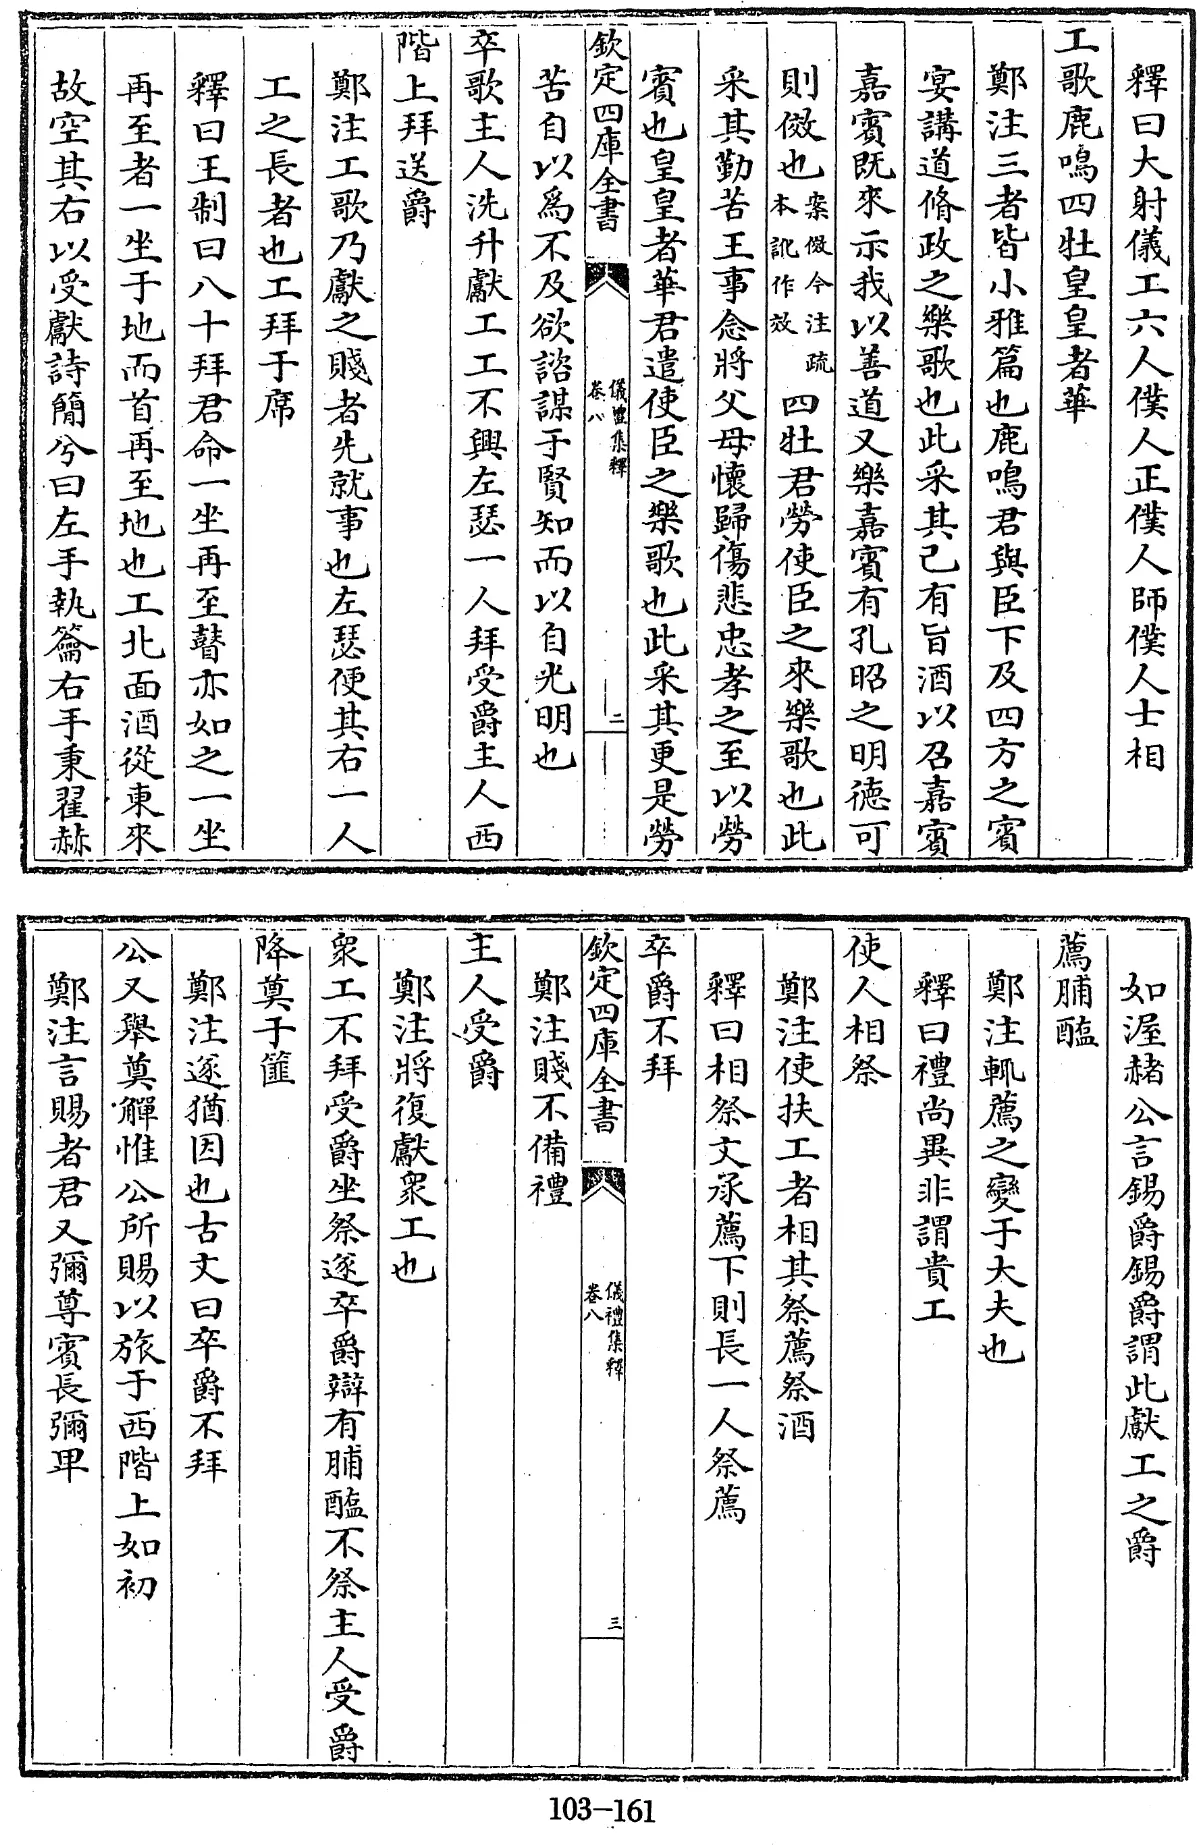 釋曰大射儀工六人僕人正僕人師僕人士相
工歌鹿鳴四牡皇皇者華
鄭注三者皆小雅篇也鹿鳴君與臣下及四方之賓
宴講道脩政之樂歌也此采其己有旨酒以召嘉賓
嘉賓既來示我以善道又樂嘉賓有孔昭之明德可
則傚也案傚今注疏本訛作效四牡君勞使臣之來樂歌也此
采其勤苦王事念將父母懷歸傷悲忠孝之至以勞
賓也皇皇者華君遣使臣之樂歌也此采其更是勞
欽定四庫全書 儀禮集釋卷八 二
苦自以為不及欲諮謀于賢知而以自光明也
卒歌主人洗升獻工工不興左瑟一人拜受爵主人西
階上拜送爵
鄭注工歌乃獻之賤者先就事也左瑟便其右一人
工之長者也工拜于席
釋曰王制曰八十拜君命一坐再至瞽亦如之一坐
再至者一坐于地而首再至地也工北面酒從東來
故空其右以受獻詩簡兮曰左手執籥右手秉翟赫
如渥赭公言錫爵錫爵謂此獻工之爵
薦脯醢
鄭注輒薦之變于大夫也
釋曰禮尚異非謂貴工
使人相祭
鄭注使扶工者相其祭薦祭酒
釋曰相祭文承薦下則長一人祭薦
卒爵不拜
欽定四庫全書 儀禮集釋卷八 三
鄭注賤不備禮
主人受爵
鄭注將復獻衆工也
衆工不拜受爵坐祭遂卒爵辯有脯醢不祭主人受爵
降奠于篚
鄭注遂猶因也古文曰卒爵不拜
公又舉奠觶惟公所賜以旅于西階上如初
鄭注言賜者君又彌尊賓長彌卑
103-161